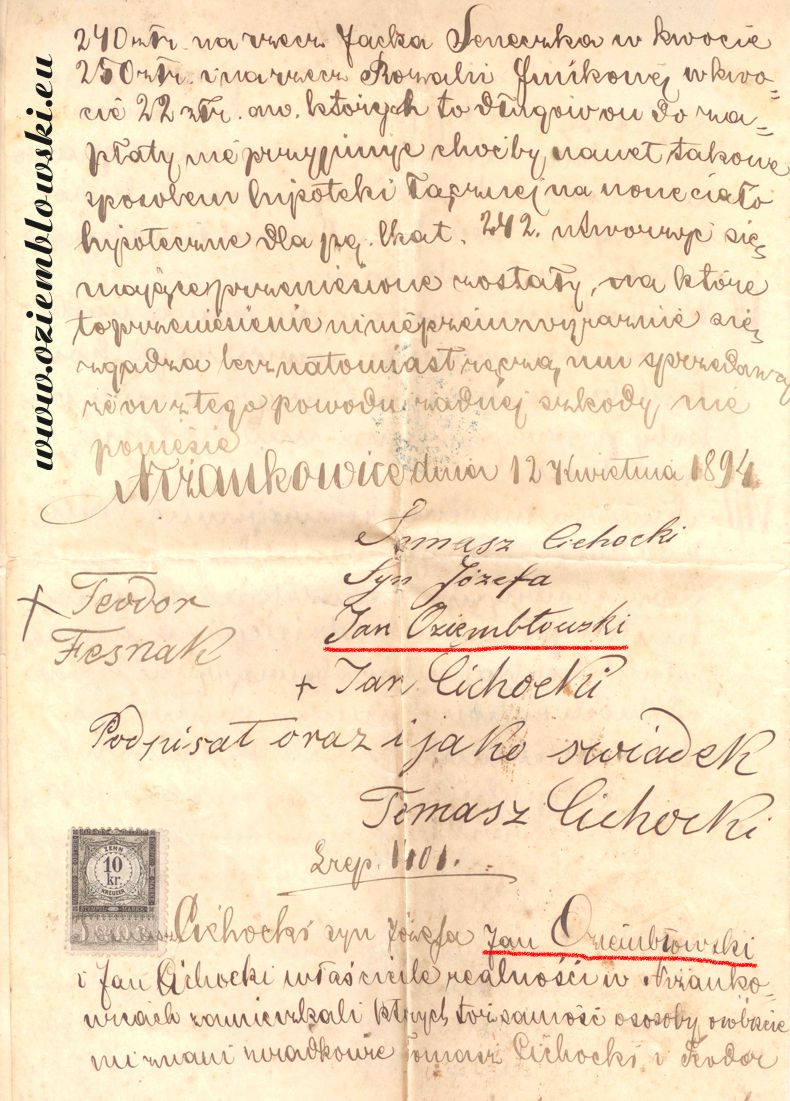 www.oziemblowski.eu
240 złr. na rzecz Jacka Seneczka w kwocie
250 złr. i na rzecz Rozalii w kwo-
cie 22 złr. aw. których to długów on do za-
płaty nie przyjmuje choćby nawet takowe
sposobem hipoteki łącznej na nowe ciało
hipoteczne dla pg. lkat. 242. utworzyć się
mające przeniesione zostały, na które
to przeniesienie niniejszem wyraźnie się
zgadza lecz natomiast ręczą mu sprzedawcy
że on z tego powodu żadnej szkody nie
poniesie
Niżankowice dnia 12 Kwietnia 1894
Tomasz Cichocki
Syn Józefa
+ Teodor
Fesnak
Jan Oziębłowski
+ Jan Cichocki
Podpisał oraz i jako swiadek
Tomasz Cichocki
Lrep. 1101.
ZEHN
10
kr.
KREUZER
Cichocki syn Józefa Jan Oziembłowski
i Jan Cichocki właściciele realności w Niżanko-
wicach zamieszkali których tożsamość osoby osobiście
mi znani świadkowie Tomasz Cichocki i Teodor